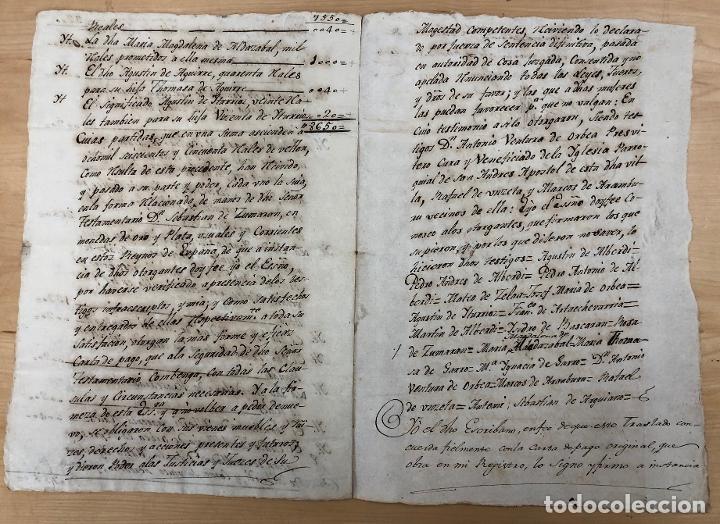 7550=
Reales
0040=
Yt. La dha Maria Magdalena de Aldazabal, mil
Reales prometidos a ella mesma
1000=
Yt. El dho Agustin de Aguirre, quarenta Rales
para su hija Thomasa de Aguirre
0040=
Yt El Significado Agustin de Yturria, veinte Ra-
les tambien para su hija Vicenta de Yturria
020=
8650=
Cuias partidas, que en una suma ascienden
seiscientos y Cinquenta Rales de vellon,
Como Resulta de esta precedente, han Recivido
y pasado a su parte y poder, cada uno la suia,
en la forma Relacionada de manos de dho Senor
Testamentario Dn. Sebastian de Zumaran, en
monedas de oro y Plata, usuales y Corrientes
en estos Reynos de España, de que a instan-
cia de dhos otorgantes doy fee yo el Escno,
por haverse verificado a presencia de los tes-
tigos infraescriptos, y mia; y como Satisfechos
y entregados de ellas a toda su
Satisfacion, otorgan la mas firme y eficaz
Carta de pago, que a la Seguridad de dho Señor
Testamentario Combenga, con todas las Clau-
sulas y Circunstancias necesarias. Y a la fir-
meza de esta Essra y a no volver a pedir de nue-
vo, se obligaron Con sus vienes muebles y rai-
ces, derechos y acciones presentes y futuros,
y dieron Poder a las Justicias y Jueces de Su
Magestad competentes, Recivienlo lo declara-
do por fuerza de Sentencia difinitiva, pasada
en autoridad de Cosa Juzgada, Consentida y no
apelada Renunciando todas las Leyes, fueros,
y dros de su favor; y las que a dhas mujeres
las puedan favorecer pa. que no valgan: En
cuio testimonio asi lo otorgaron, siendo tes-
tigos Dn. Antonio Ventura de Orbea Presvi-
tero Cura y Veneficiado de la Yglesia Parro-
quial de San Andres Apostol de esta dha vil-
la, Rafael de Unzeta, y Marcos de Arambu-
ru vecinos de ella: E yo el Essno doy fee Co-
nozco alos otorgantes, que firmaron los que
supieron, y por los que dijeron no saver, lo
hicieron dhos testigos = Agustin de Alberdi =
Pedro Andres de Alberdi = Pedro Antonio de Al-
berdi = Mateo de Zelaa = Josef Maria de Orbea =
Agustin de Yturria = Franco. de Artaechevarria =
Martin de Alberdi = Ysidro de Bascaran = Juan
de Zumaran = Maria Magdalena de Aldazabal = Maria Thoma-
sa de Garro = Ma. Ignacia de Garro = Dn. Antonio
Ventura de Orbea = Marcos de Aramburu = Rafael
de Unzeta = Antemi, Sebastian de Arguiano =
Yo el dho Escribano, en fee de que este Traslado con-
cuerda fielmente con la Carta de pago original, que
obra en mi Registro, lo Signo y firmo a instancia
todocoleccion